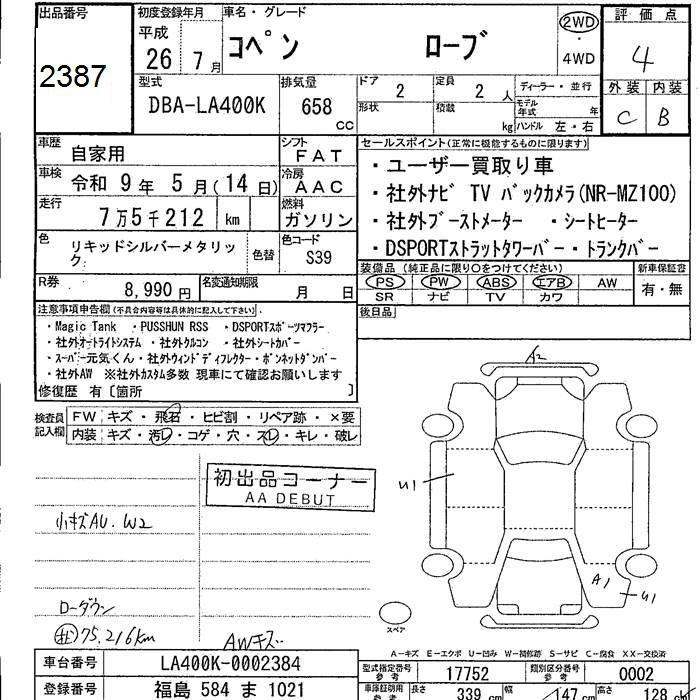 出品番号
2387
初度登録年月
平成
26年 7月
車名・グレード
コペン ローブ
2WD
・
4WD
評価点
4
外装 内装
C B
型式
DBA-LA400K
排気量
658
CC
ドア 2
定員 2 人
ディーラー・並行
形状
積載 kg
モデル年式 年
ハンドル 左・右
車歴 自家用
シフト FAT
車検 令和 9年 5月(14日)
冷房 AAC
走行 7万5千212 km
燃料 ガソリン
色 リキッドシルバーメタリック
色替
色コード S39
R券 8,990円
名変通知期限 月 日
セールスポイント(正常に機能するものに限ります)
・ユーザー買取り車
・社外ナビ TV バックカメラ(NR-MZ100)
・社外ブーストメーター ・シートヒーター
・DSPORTストラットタワーバー・トランクバー
装備品(純正品に限り○をつけてください)
新車保証書
PS PW ABS エアB AW
SR ナビ TV カワ
有・無
後日品
注意事項申告欄(不具合内容等は具体的に記入して下さい)
・Magic Tank ・PUSSHUN RSS ・DSPORTスポーツマフラー
・社外オートライトシステム ・社外クルコン ・社外シートカバー
・スーパー元気くん・社外ウィンドディフレクター・ボンネットダンパー
・社外AW ※社外カスタム多数 現車にて確認お願いします
修復歴 有〔箇所 〕
検査員記入欄
FW キズ・飛石・ヒビ割・リペア跡・×要
内装 キズ・汚レ・コゲ・穴・スレ・キレ・破レ
初出品コーナー
AA DEBUT
小キズAU.W2
ローダウン
75,216km
AWキズ
A2
U1
A1
U1
スペア
A-キズ E-エクボ U-凹み W-補修跡 S-サビ C-腐食 XX-交換済
車台番号 LA400K-0002384
登録番号 福島 584 ま 1021
型式指定番号 参考 17752
類別区分番号 参考 0002
車庫証明用 参考
長さ 339 cm
幅 147 cm
高さ 128 cm